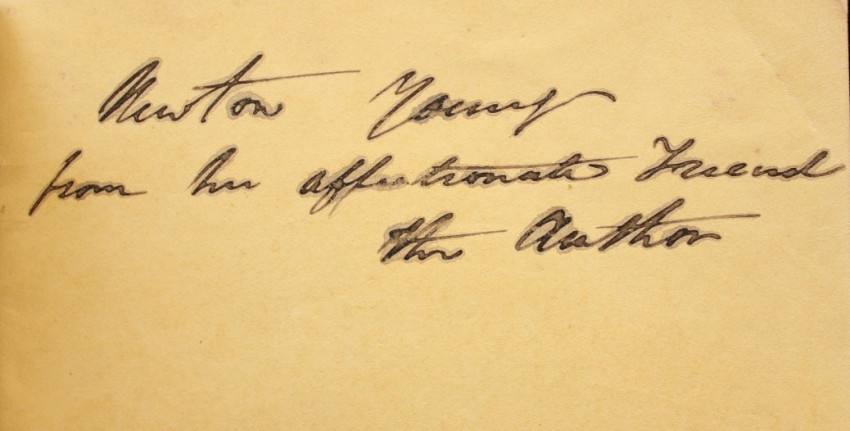 Newton Young
from his affectionate Friend
the Author